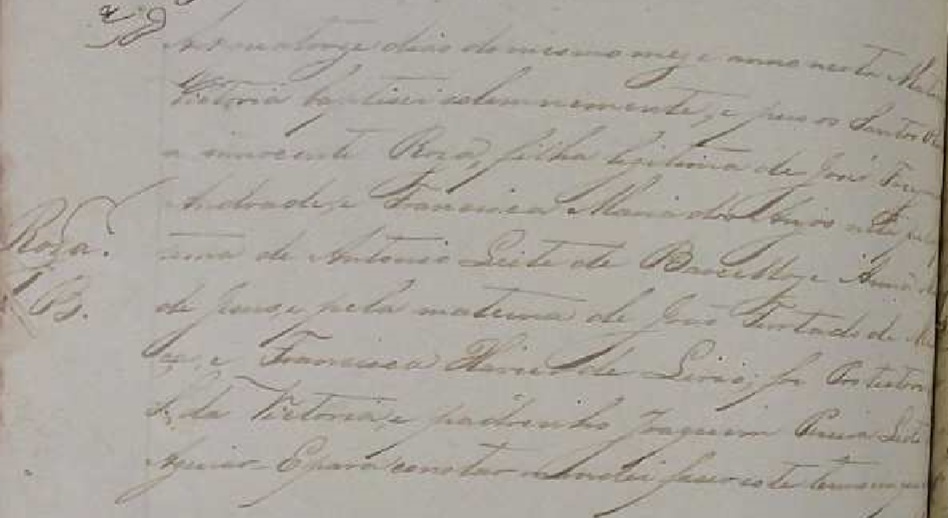 Aos quatorze dias do mesmo mez e anno nesta Matriz
Victoria baptisei solemnemente, e puz os Santos
a innocente Roza, filha legitima de José
Andrade, e Francisca Maria dos Anjos neta
Roza.
erna de Antonio Leite de Barcellos e Anna
B.
de Jesus, e pela materna de José Furtado de
e Francisca Xavier de Lirio; foi Protectora
S. da Victoria, e padrinho Joaquim Leite
Aguiar. E para constar mandei fazer este termo